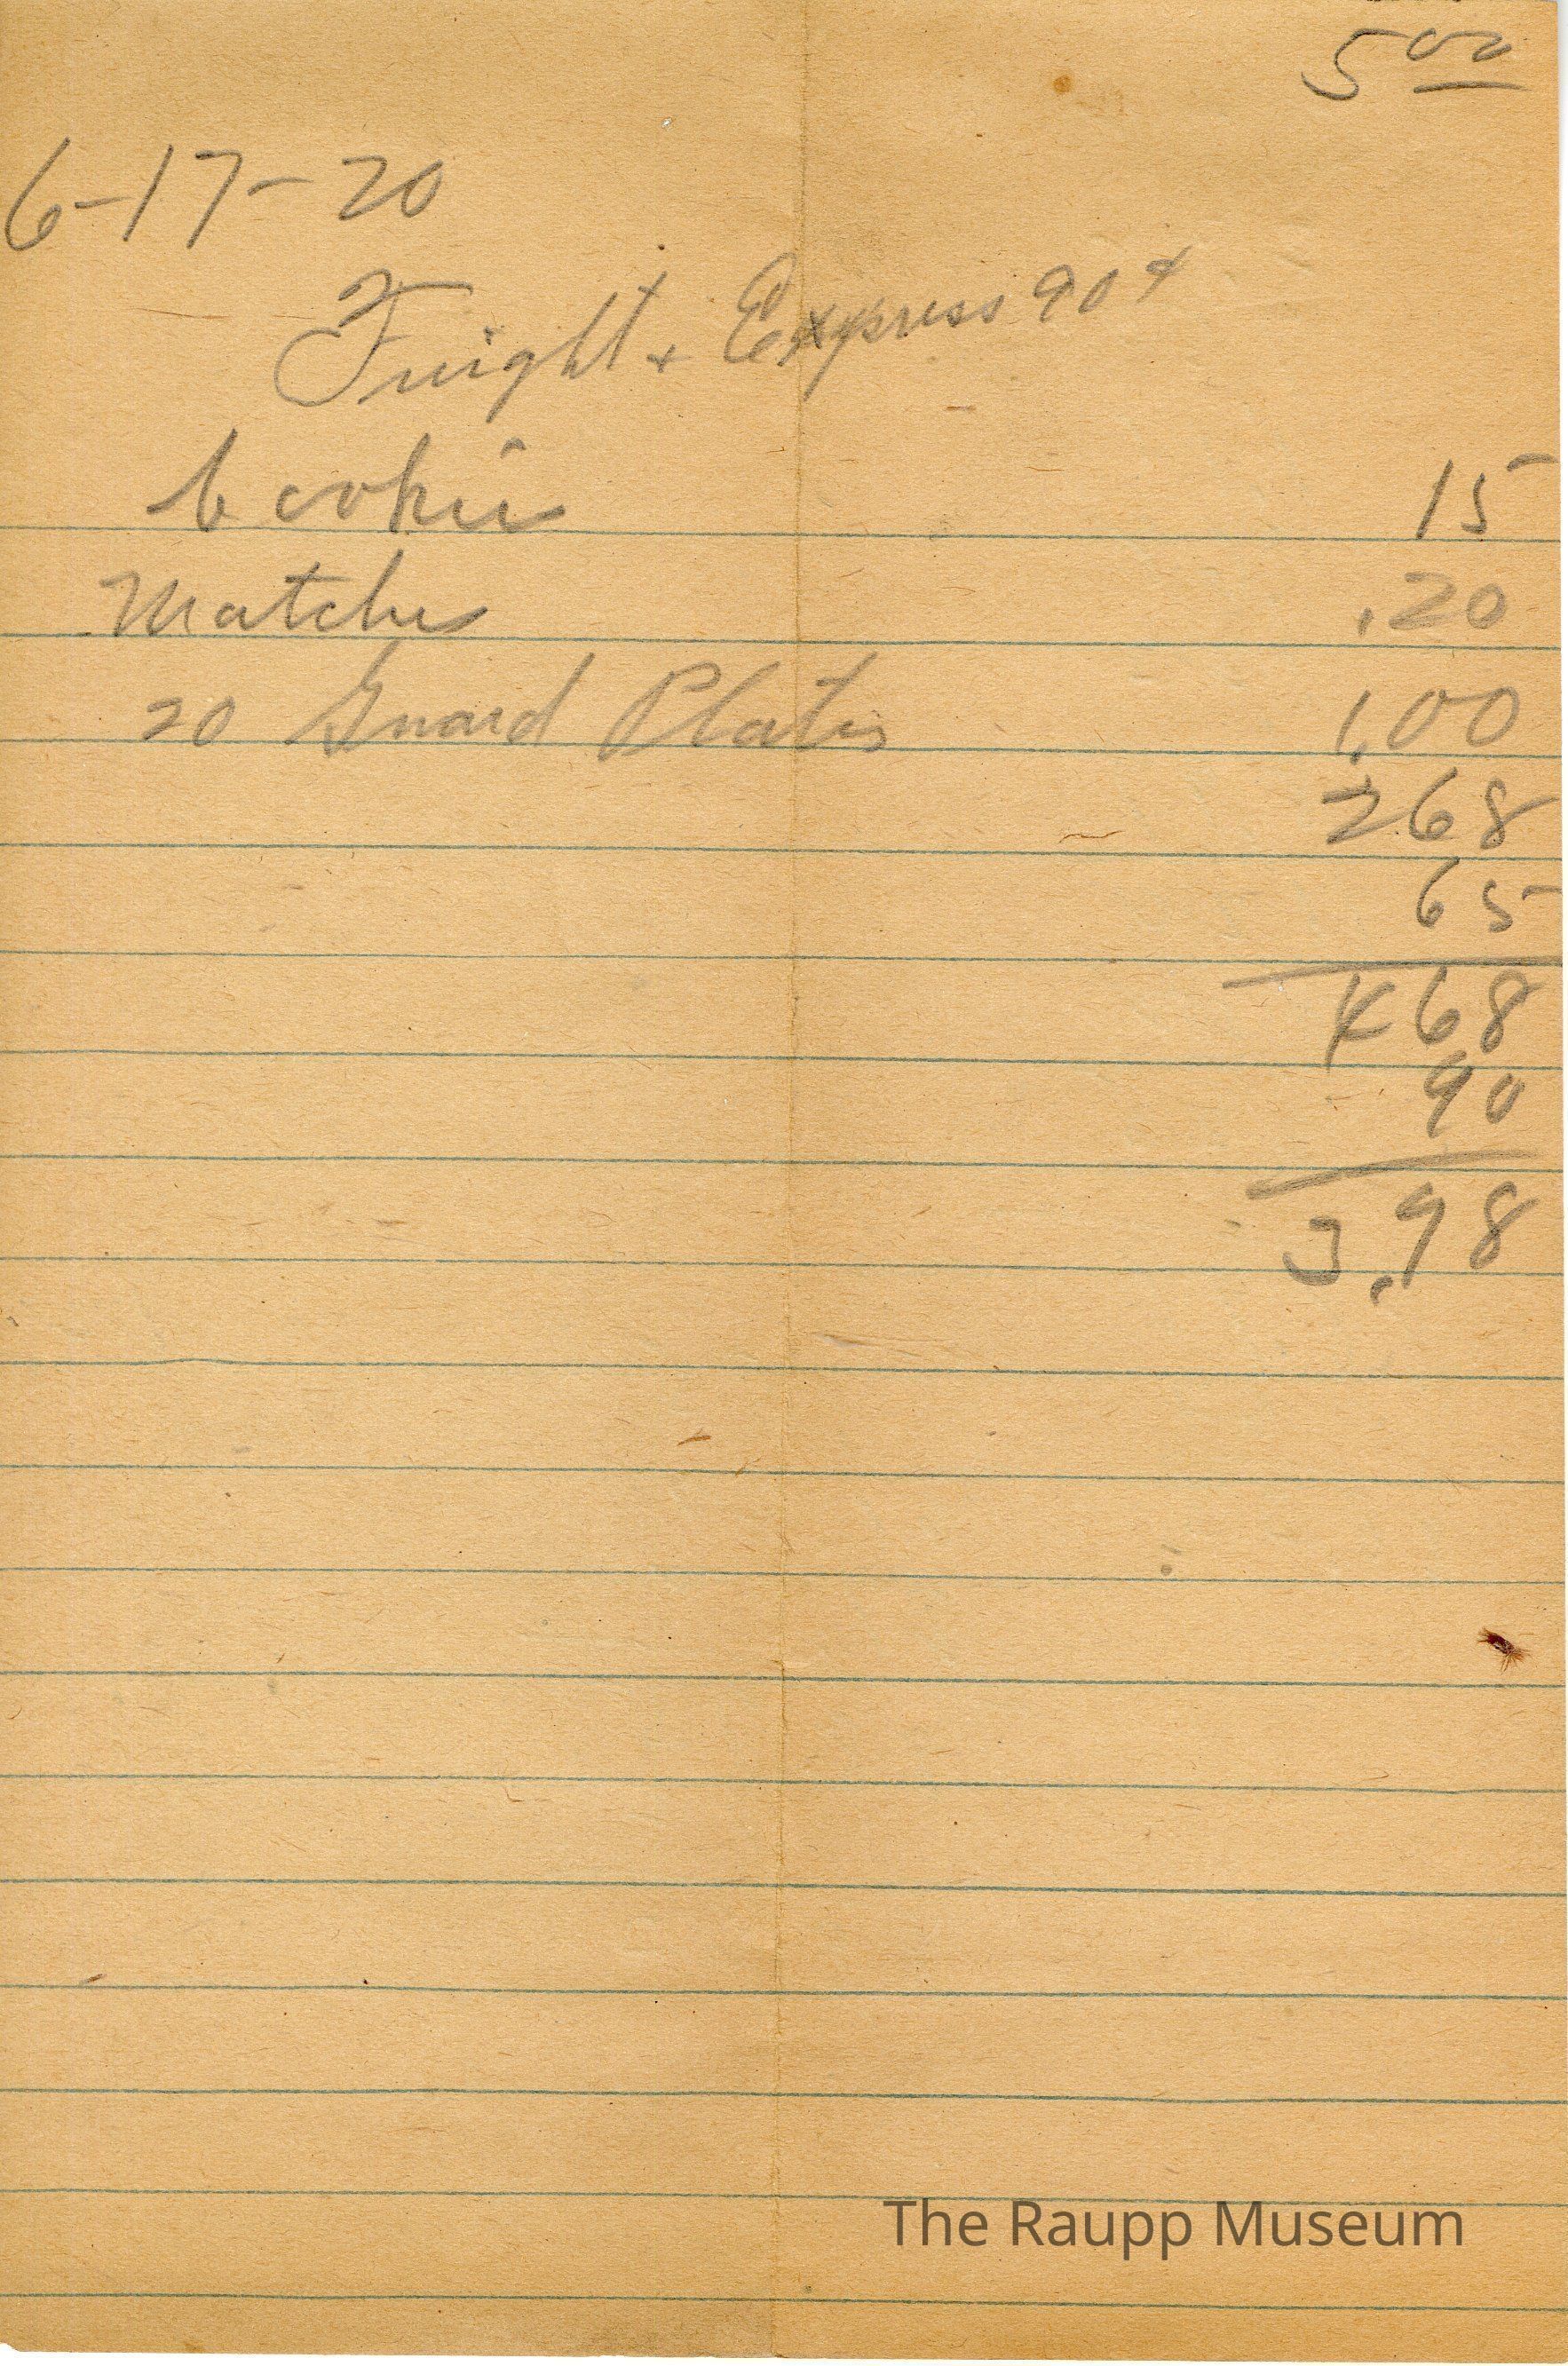 5 00
6-17-20
Freight + Express 90 ¢
6 cokies
Matches
15
.20
20 Guard Plates 1.00
2.68
65
4 68
90
3.98
The Raupp Museum